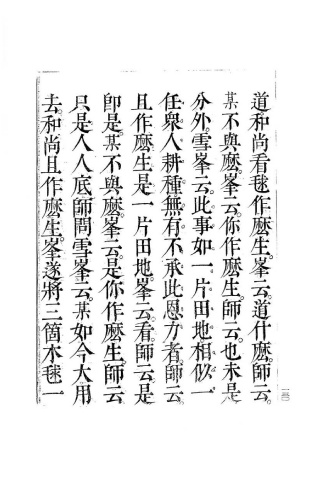 道和尚看毬作麽生。峯云。道什麽。師云。
某不與麽。峯云。你作麽生。師云。也未是
分外。雪峯云。此事如一片田地相似。一
任衆人耕種。無有不承此恩力者。師云。
且作麽生是一片田地。峯云。看。師云。是
卽是。某不與麽。峯云。是你作麽生。師云
只是人人底。師問雪峯云。某如今大用
去。和尚且作麽生。峯遂將三箇木毬一